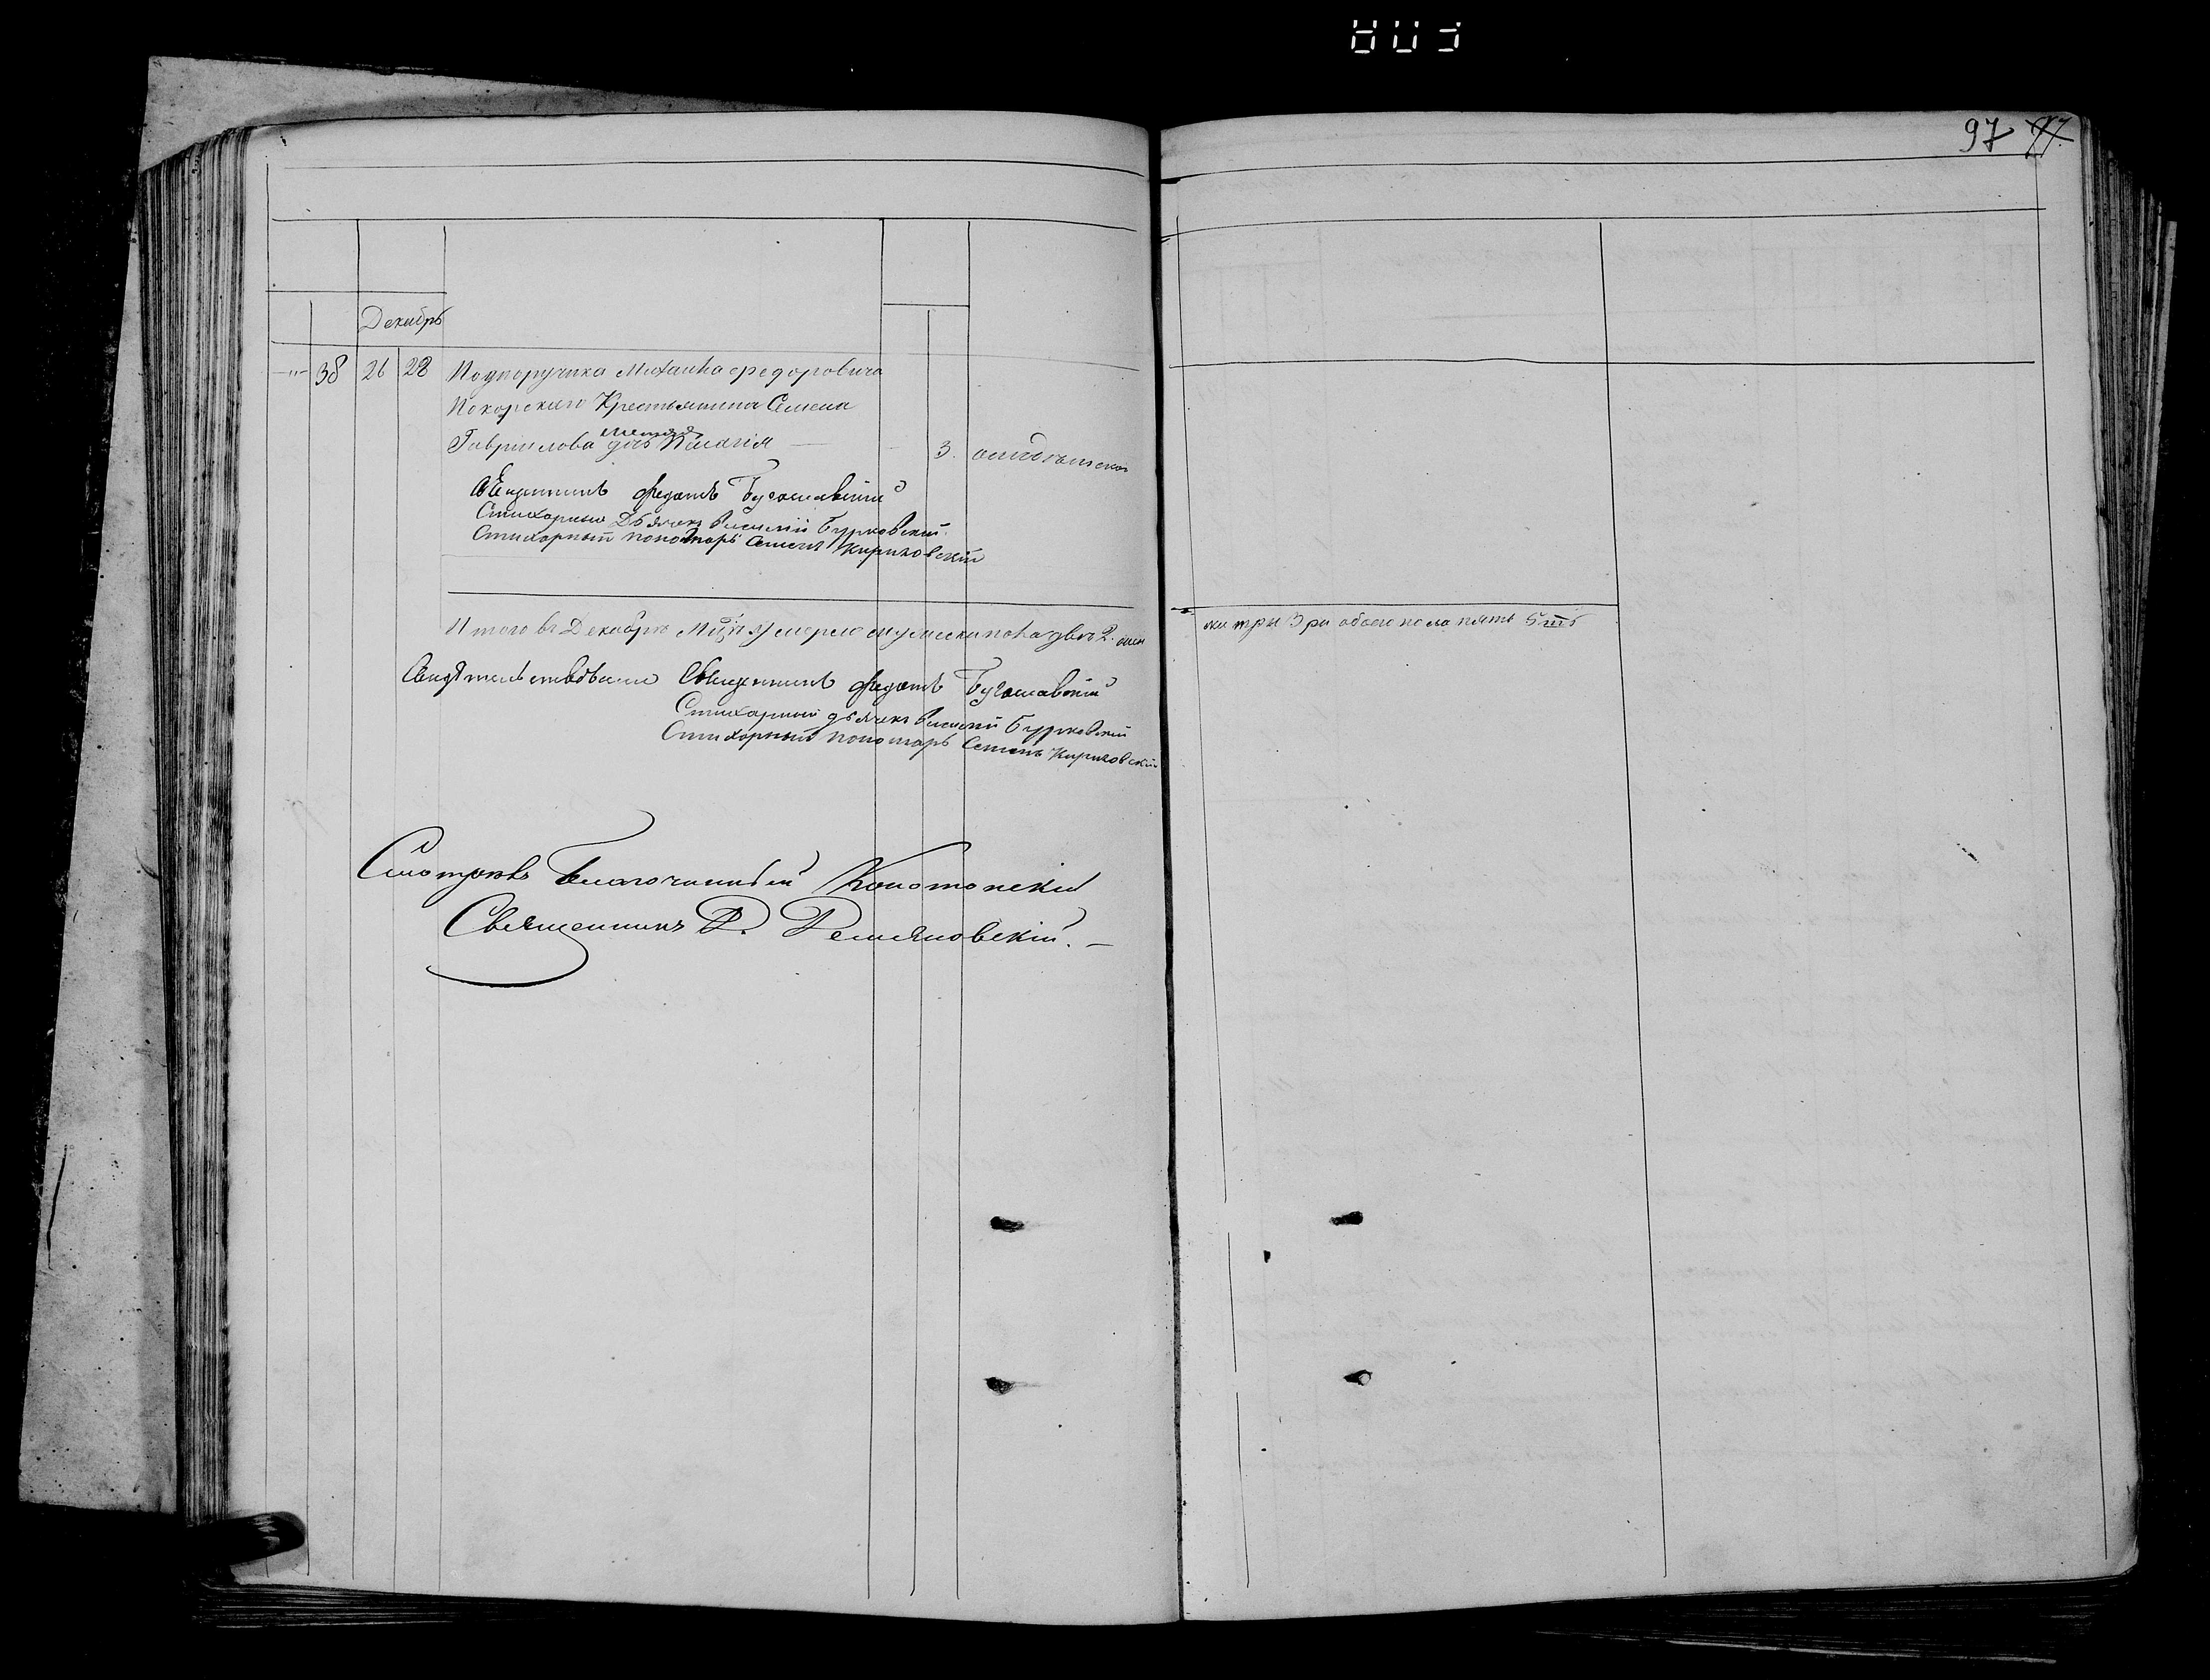 97
Декабрь
-"- 38 26 28 Подпоручика Михаила Федоровича
Покорскаго Крестьянина Семена
Гаврилова дочь Пелагія 3.
Священникъ Федотъ Бугославскій
Стихарный Дьячекъ Василій Бурковскій
Стихарный пономарь Семенъ Кириловскій
Итого въ Декабрѣ М[ѣ]ц[ѣ] умерло мужеска пола двое 2. жен
ска три 3 ри обоего пола пять 5ть
Свидѣтельствовали Священникъ Федотъ Бугославскій
Стихарный дьячекъ Василій Бурковскій
Стихарный пономарь Семенъ Кириловскій
Смотрѣлъ Благочинный Конотопскій
Священникъ